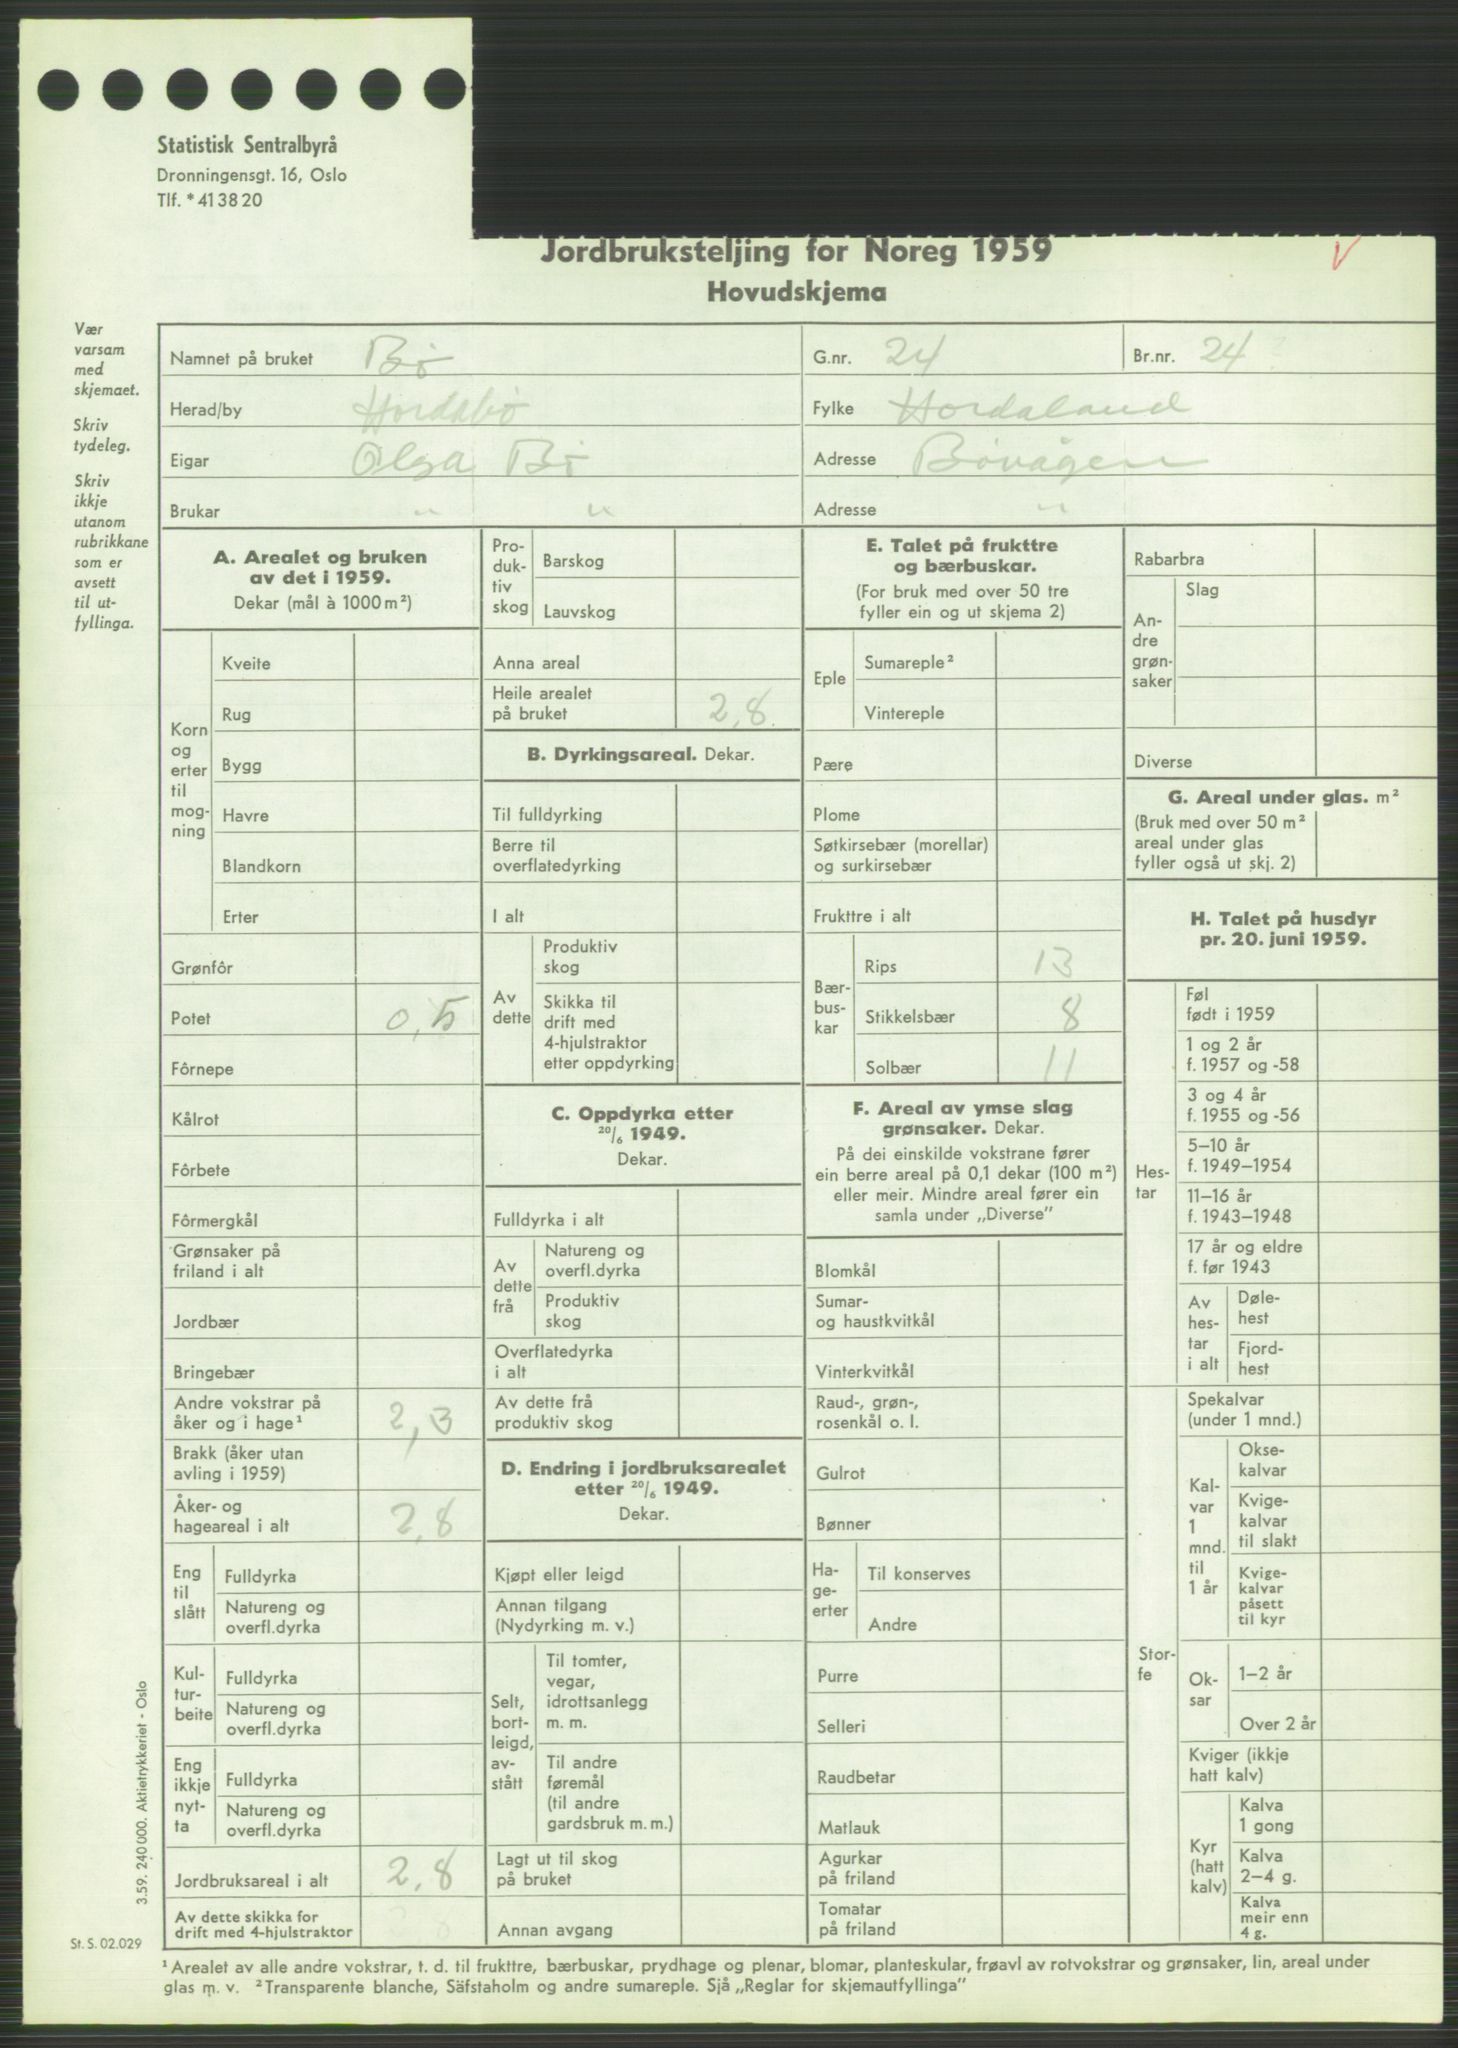 Statistisk Sentralbyrå
Dronningensgt. 16, Oslo
Tlf. * 41 38 20
Jordbruksteljing for Noreg 1959
Hovudskjema
V
Vær
varsam
med
skjemaet.
Skriv
tydeleg.
Skriv
ikkje
utanom
rubrikkane
som er
avsett
til ut-
fyllinga.
Namnet på bruket Bø G.nr. 24 Br.nr. 24
Herad/by Hordabø Fylke Hordaland
Eigar Olga Bø Adresse Bøvågen
Brukar " " Adresse "
A. Arealet og bruken
av det i 1959.
Dekar (mål à 1000 m²)
Korn
og
erter
til
mog-
ning
Kveite
Rug
Bygg
Havre
Blandkorn
Erter
Grønfôr
Potet 0,5
Fôrnepe
Kålrot
Fôrbete
Fôrmergkål
Grønsaker på
friland i alt
Jordbær
Bringebær
Andre vokstrar på
åker og i hage¹ 2,3
Brakk (åker utan
avling i 1959)
Åker- og
hageareal i alt 2,8
Eng
til
slått
Fulldyrka
Natureng og
overfl.dyrka
Kul-
tur-
beite
Fulldyrka
Natureng og
overfl.dyrka
Eng
ikkje
nyt-
ta
Fulldyrka
Natureng og
overfl.dyrka
Jordbruksareal i alt 2,8
Av dette skikka for
drift med 4-hjulstraktor
Pro-
duk-
tiv
skog
Barskog
Lauvskog
Anna areal
Heile arealet
på bruket 2,8
B. Dyrkingsareal. Dekar.
Til fulldyrking
Berre til
overflatedyrking
I alt
Av
dette
Produktiv
skog
Skikka til
drift med
4-hjulstraktor
etter oppdyrking
C. Oppdyrka etter
20/6 1949.
Dekar.
Fulldyrka i alt
Av
dette
frå
Natureng og
overfl.dyrka
Produktiv
skog
Overflatedyrka
i alt
Av dette frå
produktiv skog
D. Endring i jordbruksarealet
etter 20/6 1949.
Dekar.
Kjøpt eller leigd
Annan tilgang
(Nydyrking m. v.)
Selt,
bort-
leigd,
av-
stått
Til tomter,
vegar,
idrottsanlegg
m. m.
Til andre
føremål
(til andre
gardsbruk m. m.)
Lagt ut til skog
på bruket
Annan avgang
E. Talet på frukttre
og bærbuskar.
(For bruk med over 50 tre
fyller ein og ut skjema 2)
Eple
Sumareple²
Vintereple
Pære
Plome
Søtkirsebær (morellar)
og surkirsebær
Frukttre i alt
Bær-
bus-
kar
Rips 13
Stikkelsbær 8
Solbær 11
F. Areal av ymse slag
grønsaker. Dekar.
På dei einskilde vokstrane fører
ein berre areal på 0,1 dekar (100 m²)
eller meir. Mindre areal fører ein
samla under „Diverse”
Blomkål
Sumar-
og haustkvitkål
Vinterkvitkål
Raud-, grøn-,
rosenkål o. l.
Gulrot
Bønner
Ha-
ge-
erter
Til konserves
Andre
Purre
Selleri
Raudbetar
Matlauk
Agurkar
på friland
Tomatar
på friland
Rabarbra
An-
dre
grøn-
saker
Slag
Diverse
G. Areal under glas. m²
(Bruk med over 50 m²
areal under glas
fyller også ut skj. 2)
H. Talet på husdyr
pr. 20. juni 1959.
Hes-
tar
Føl
født i 1959
1 og 2 år
f. 1957 og -58
3 og 4 år
f. 1955 og -56
5–10 år
f. 1949–1954
11–16 år
f. 1943–1948
17 år og eldre
f. før 1943
Av
hes-
tar
i alt
Døle-
hest
Fjord-
hest
Stor-
fe
Spekalvar
(under 1 mnd.)
Kal-
var
1
mnd.
til
1 år
Okse-
kalvar
Kvige-
kalvar
til slakt
Kvige-
kalvar
påsett
til kyr
Ok-
sar
1–2 år
Over 2 år
Kviger (ikkje
hatt kalv)
Kyr
(hatt
kalv)
Kalva
1 gong
Kalva
2–4 g.
Kalva
meir enn
4 g.
3.59. 240 000. Aktietrykkeriet - Oslo
St. S. 02.029
¹ Arealet av alle andre vokstrar, t. d. til frukttre, bærbuskar, prydhage og plenar, blomar, planteskular, frøavl av rotvokstrar og grønsaker, lin, areal under
glas m. v. ² Transparente blanche, Säfstaholm og andre sumareple. Sjå „Reglar for skjemautfyllinga”